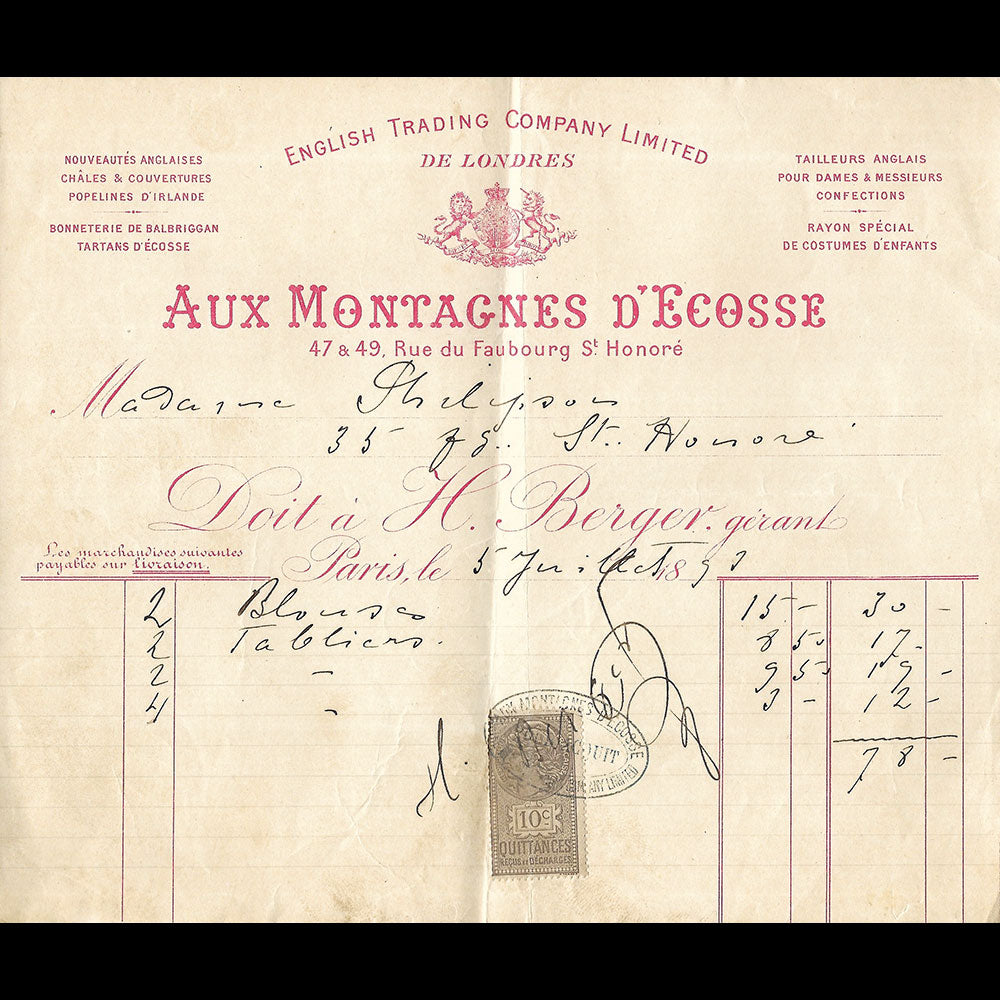 ENGLISH TRADING COMPANY LIMITED
DE LONDRES
NOUVEAUTÉS ANGLAISES
CHÂLES & COUVERTURES
POPELINES D'IRLANDE
BONNETERIE DE BALBRIGGAN
TARTANS D'ÉCOSSE
TAILLEURS ANGLAIS
POUR DAMES & MESSIEURS
CONFECTIONS
RAYON SPÉCIAL
DE COSTUMES D'ENFANTS
AUX MONTAGNES D'ECOSSE
47 & 49, Rue du Faubourg St Honoré
Madame Philipson
35 fg. St. Honoré
Doit à H. Berger, gérant
Les marchandises suivantes
payables sur livraison.
Paris, le 5 Juillet 1893
2 Blouses 15 - 30 -
2 Tabliers. 8 50 17 -
2 - 9 50 19 -
4 - 3 - 12 -
78 -
AUX MONTAGNES D'ECOSSE
COMPANY LIMITED
10c
QUITTANCES
REÇUS ET DÉCHARGES